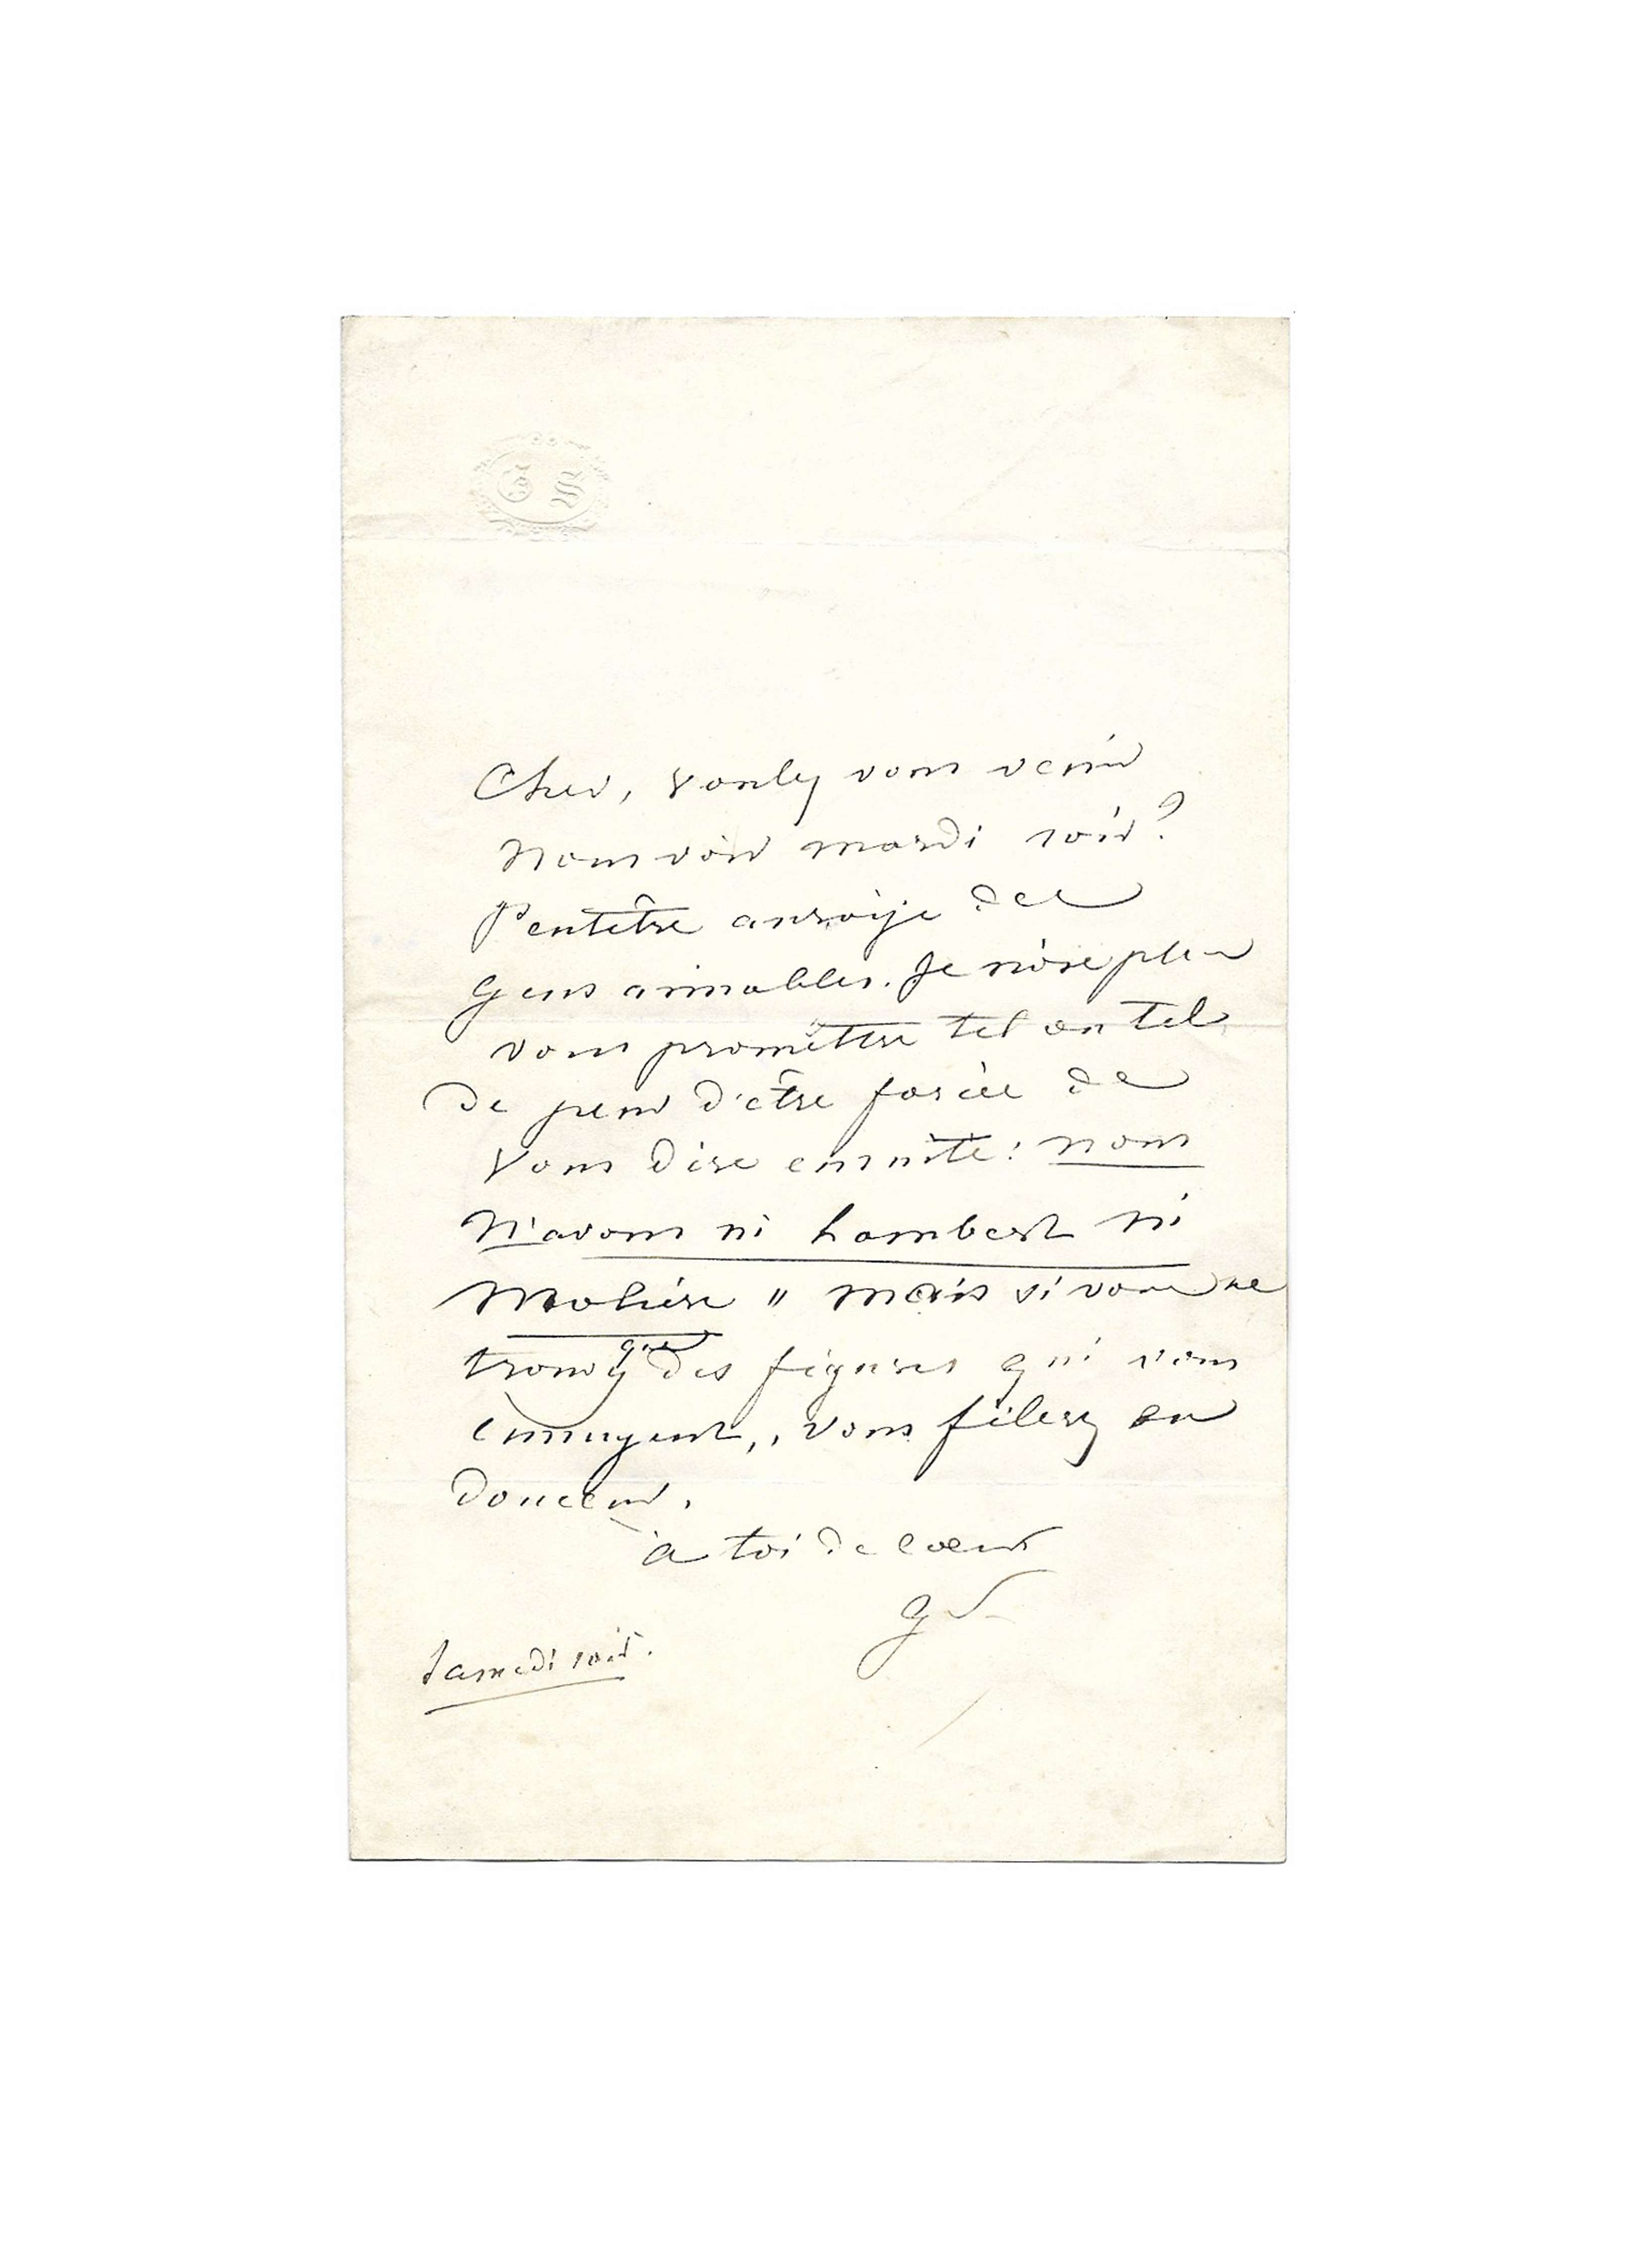 G S
Cher, voulez vous venir
nous voir mardi soir?
Peutêtre auraije des
gens aimables. Je n'ose plus
vous promettre tel ou tel
de peur d'être forcée de
vous dire ensuite: nous
n'avons ni Lambert ni
Molière " mais si vous ne
trouvez que des figures qui vous
ennuyent, vous filerez en
douceur.
à toi de coeur
G S
Samedi soir.